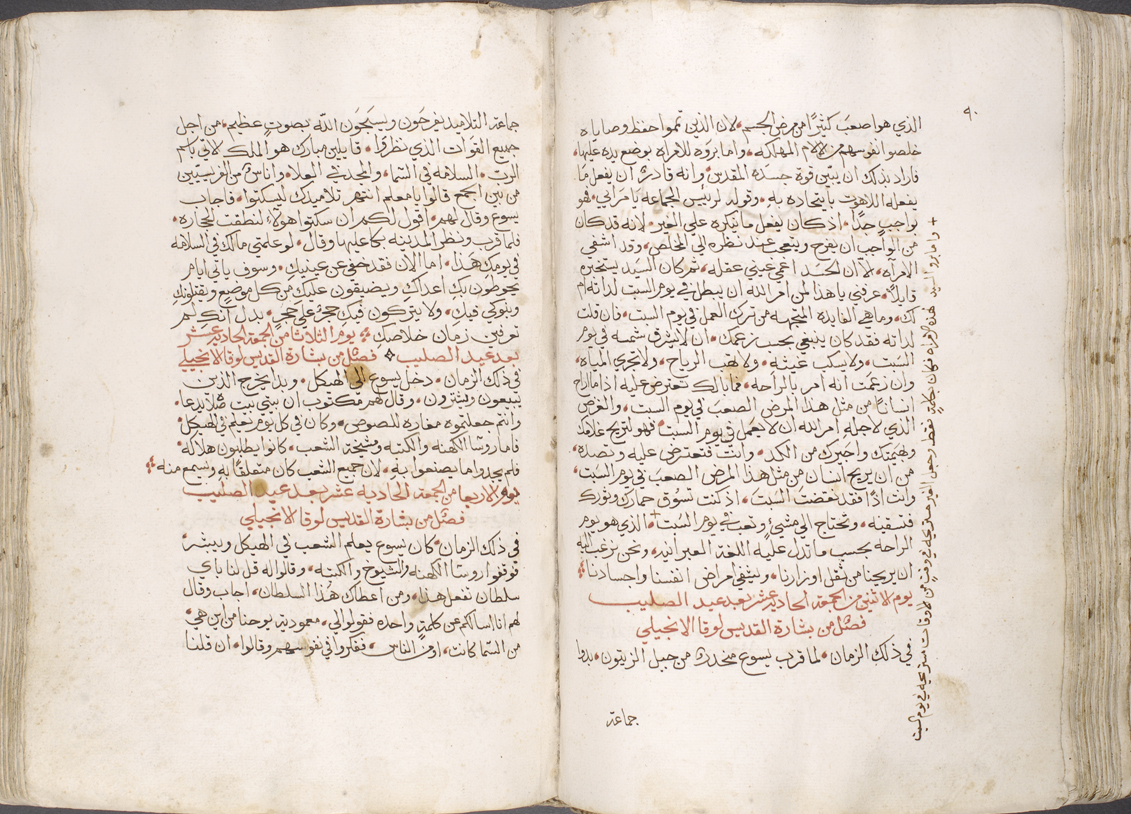 ٩٠
الذي هو اصعب كثيرًا من مرض الجسم، لان الذين تموا حفظ وصاياه
خلصوا نفوسهم من الالام المهلكه، واما بروه للامراه بوضع يده عليها،
فاراد بذلك ان يبين قوة جسده المقدس، وانه قادر ان يفعل ما
يفعله اللاهوت باتحاده به، وقوله لرئيس الجماعه يا مرائي، فهو
بواجب جدًا، اذ كان يفعل ما ينكره على الغير، لانه قد كان
من الواجب ان يفرح ويبتهج عند نظره الى المخلص، وقد اشفى
الامراه، الا ان الحسد اعمى عيني عقله، ثم كان السيد يستخبره
قايلًا، عرفني يا هذا لمن امر الله ان يبطل في يوم السبت لذاته ام
لك، وما هي الفايده المتجهه من ترك العمل في يوم السبت، فان قلت
لذاته فقد كان ينبغي بحسب زعمك، ان لا يشرق شمسه في يوم
السبت، ولا يسكب غيثه، ولا تهب الرياح، ولا تجري المياه،
وان زعمت انه امر بالراحه، فما بالك تعترض عليه اذا ما اراح
انسانًا من مثل هذا المرض الصعب في يوم السبت، والغرض
الذي لاجله امر الله ان لا يعمل في يوم السبت، فهو لتريح غلامك
وبهيمتك واجيرك من الكد، وانت فتعترض عليه وتصده،
من ان يريح انسان من مثل هذا المرض الصعب في يوم السبت،
وانت اذًا فقد نقضت السبت، اذ كنت تسوق حمارك وثورك
فتسقيه، وتحتاج الى مشيئ وتعب في يوم السبت + الذي هو يوم
الراحه بحسب ما تدل عليه اللغة العبرانيه، ونحن نرغب اليه
ان يريحنا من ثقل اوزارنا، ويشفي امراض انفسنا واجسادنا
يوم الاثنين من الجمعه الحاديه عشر بعد عيد الصليب
فصل من بشارة القديس لوقا الانجيلي
في ذلك الزمان، لما قرب يسوع منحدرًا من جبل الزيتون، بدوا
جماعة
جماعة التلاميذ يفرحون ويسبحون الله بصوت عظيم، من اجل
جميع القوات الذي نظروا، قايلين مبارك هو الملك الاتي باسم
الرب، السلامه في السما، والمجد في العلا، واناس من الفريسيين
من بين الجمع قالوا يا معلم انتهر تلاميذك ليسكتوا، فاجاب
يسوع وقال لهم، اقول لكم ان سكتوا هولاء لنطقت الحجاره،
فلما قرب ونظر المدينه بكا عليها وقال، لو علمتي ما لك في السلامه
في يومك هذا، اما الان فقد خفي عن عينيك، وسوف ياتي ايام
يحوطون بك اعداك ويضيقون عليك من كل موضع ويقتلونك
وبنوكي فيك، ولا يتركون فيك حجرًا على حجر، بدل انك لم
تعرفين زمان خلاصك يوم الثلاثا من الجمعه الحاديه عشر
بعد عيد الصليب فصل من بشارة القديس لوقا الانجيلي
في ذلك الزمان، دخل يسوع الى الهيكل، وبدا يخرج الذين
يبيعون ويشترون، وقال لهم مكتوب ان بيتي بيت صلاة يدعا،
وانتم جعلتموه مغارة للصوص، وكان في كل يوم يعلم في الهيكل،
فاما روسا الكهنه والكتبه ومشيخة الشعب، كانوا يطلبون هلاكه،
فلم يجدوا ما يصنعوا به، لان جميع الشعب كان متعلقًا به ويسمع منه
يوم الاربعا من الجمعه الحاديه عشر بعد عيد الصليب
فصل من بشارة القديس لوقا الانجيلي
في ذلك الزمان، كان يسوع يعلم الشعب في الهيكل ويبشر،
فوقفوا روسا الكهنه والشيوخ والكتبه، وقالوا له قل لنا باي
سلطان تفعل هذا، ومن اعطاك هذا السلطان، اجاب وقال
لهم انا اسالكم عن كلمة واحده فقولوا لي، معمودية يوحنا من اين هي،
من السما كانت، او من الناس، ففكروا في نفوسهم وقالوا، ان قلنا